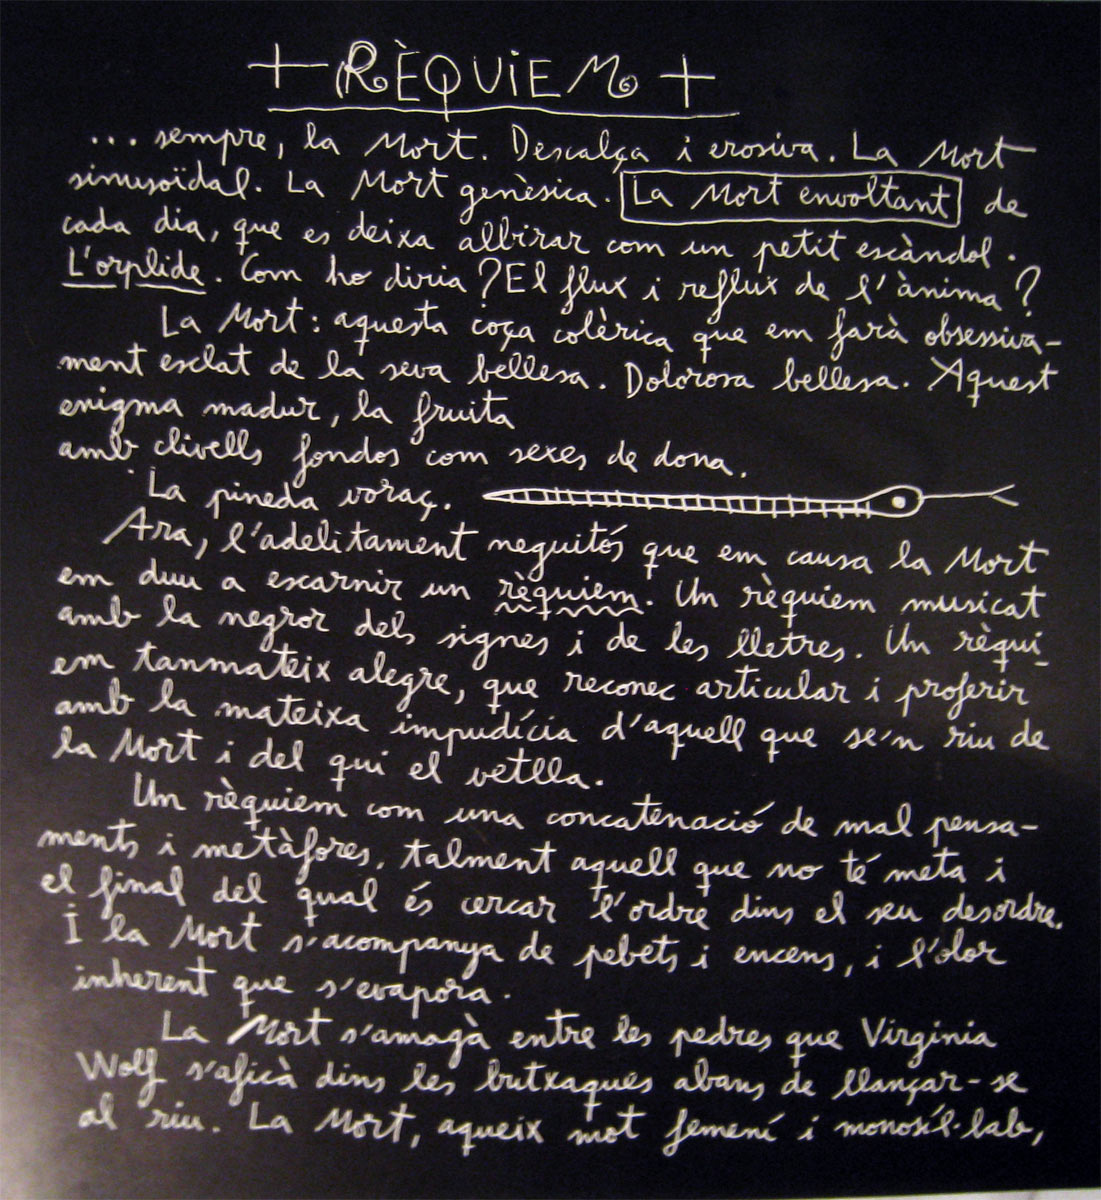 + RÈQUIEM +
... sempre, la Mort. Descalça i erosiva. La Mort
sinusoïdal. La Mort genèsica. La Mort envoltant de
cada dia, que es deixa albirar com un petit escàndol.
L'orplide. Com ho diria? El flux i reflux de l'ànima?
La Mort: aquesta coça colèrica que em farà obsessiva-
ment esclat de la seva bellesa. Dolorosa bellesa. Aquest
enigma madur, la fruita
amb clivells fondos com sexes de dona.
La pineda voraç.
Ara, l'adelitament neguitós que em causa la Mort
em duu a escarnir un rèquiem. Un rèquiem musicat
amb la negror dels signes i de les lletres. Un rèqui-
em tanmateix alegre, que reconec articular i proferir
amb la mateixa impudícia d'aquell que se'n riu de
la Mort i del qui el vetlla.
Un rèquiem com una concatenació de mal pensa-
ments i metàfores, talment aquell que no té meta i
el final del qual és cercar l'ordre dins el seu desordre.
I la Mort s'acompanya de pebets i encens, i l'olor
inherent que s'evapora.
La Mort s'amagà entre les pedres que Virginia
Wolf s'aficà dins les butxaques abans de llançar-se
al riu. La Mort, aqueix mot femení i monosíl·lab,